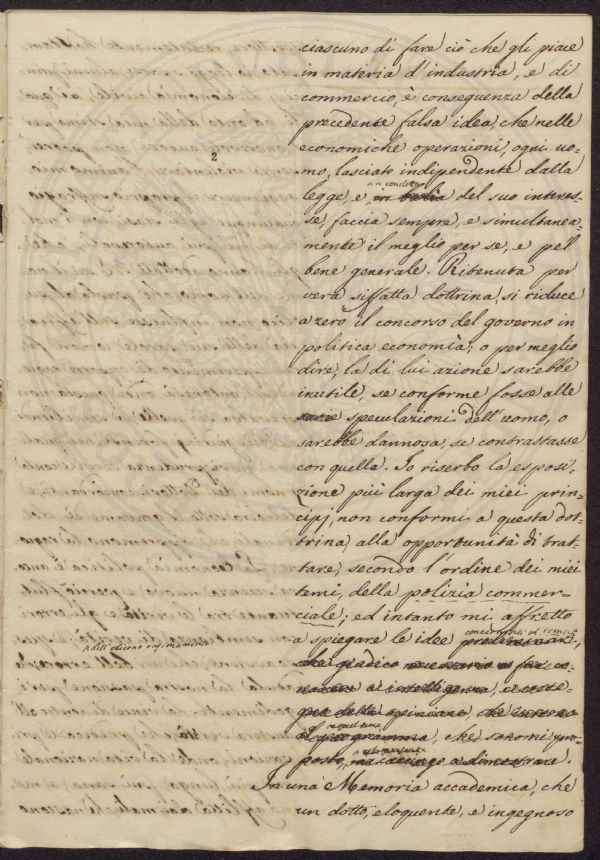 ciascuno di fare ciò che gli piace
in materia d'industria, e di
commercio, è conseguenza della
precedente falsa idea, che nelle
economiche operazioni, ogni uo=
2
mo, lasciato indipendente dalla
legge, e in balia del suo interes=
se, faccia sempre, e simultanea=
mente il meglio per se, e pel
bene generale. Ritenuta per
vera siffatta dottrina, si riduce
a zero il concorso del governo in
politica economia; o per meglio
dire, la di lui azione sarebbe
inutile, se conforme fosse alle
varie speculazioni dell'uomo, o
sarebbe dannosa, se contrastasse
con quelle. Io riserbo la esposi=
zione più larga dei miei prin=
cipj, non conformi a questa dot=
trina, alla opportunità di trat=
tare, secondo l'ordine dei miei
temi, della polizia commer=
ciale; ed intanto mi affretto
a spiegare le idee
che giudico necessario
a intelligenza, e
della opinione,
al programma, che sonomi pro=
posto, m'accingo a dimostrare.
In una Memoria accademica, che
un dotto, eloquente, e ingegnoso